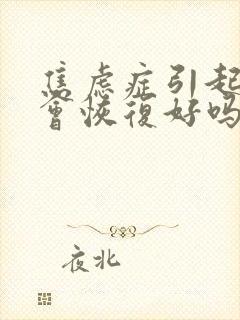 焦虑症引起
會恢復好吗
夜北